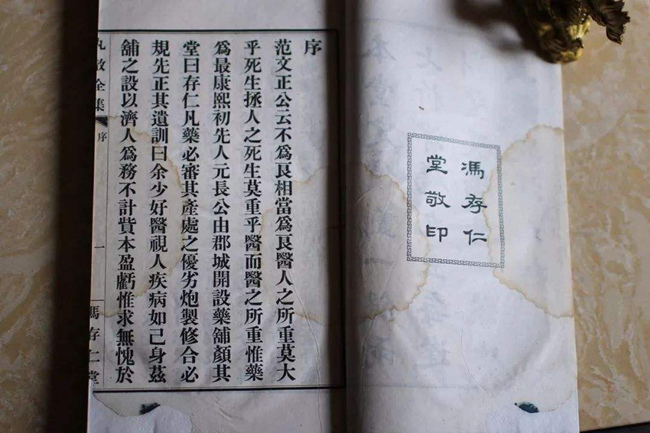 馮存仁
堂敬印
序
范文正公云不爲良相當爲良醫人之所重莫大
乎死生拯人之死生莫重乎醫而醫之所重惟藥
爲最康熙初先人元長公由郡城開設藥舖顏其
堂曰存仁凡藥必審其產處之優劣炮製修合必
規先正其遺訓曰余少好醫視人疾病如己身茲
舖之設以濟人爲務不計貲本盈虧惟求無愧於
丸散全集 序 一 馮存仁堂